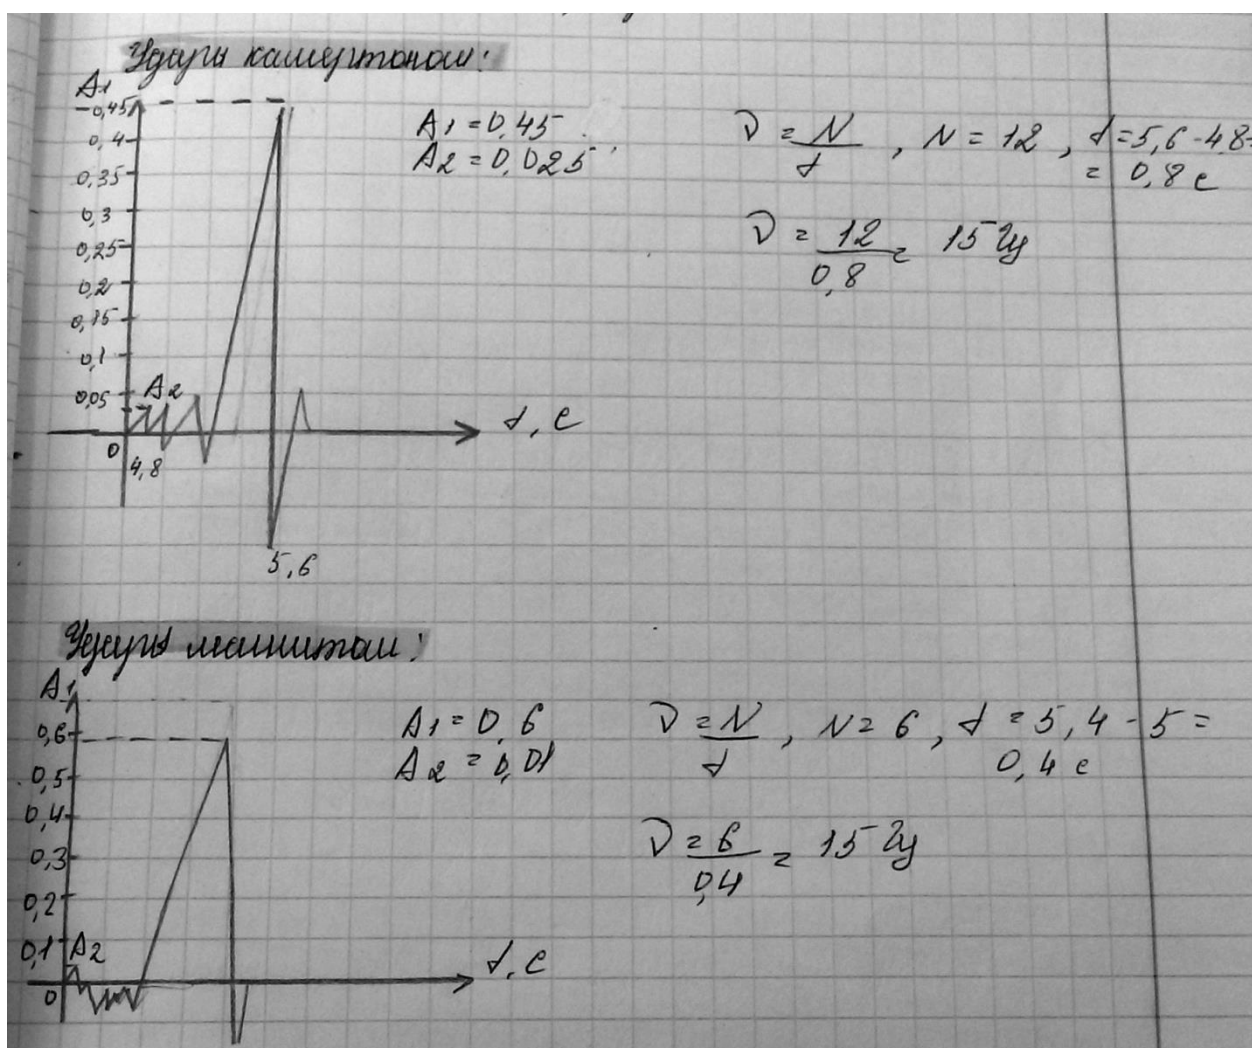 Удары камертоном:
A1
0,45
0,4
0,35
0,3
0,25
0,2
0,15
0,1
0,05
A2
0
4,8
5,6
t, c
A1 = 0,45
A2 = 0,025
ν = N/t , N = 12 , t = 5,6 - 4,8 =
= 0,8 c
ν = 12/0,8 = 15 Гц
Удары магнитом:
A1
0,6
0,5
0,4
0,3
0,2
0,1
A2
0
t, c
A1 = 0,6
A2 = 0,01
ν = N/t , N = 6 , t = 5,4 - 5 =
0,4 c
ν = 6/0,4 = 15 Гц